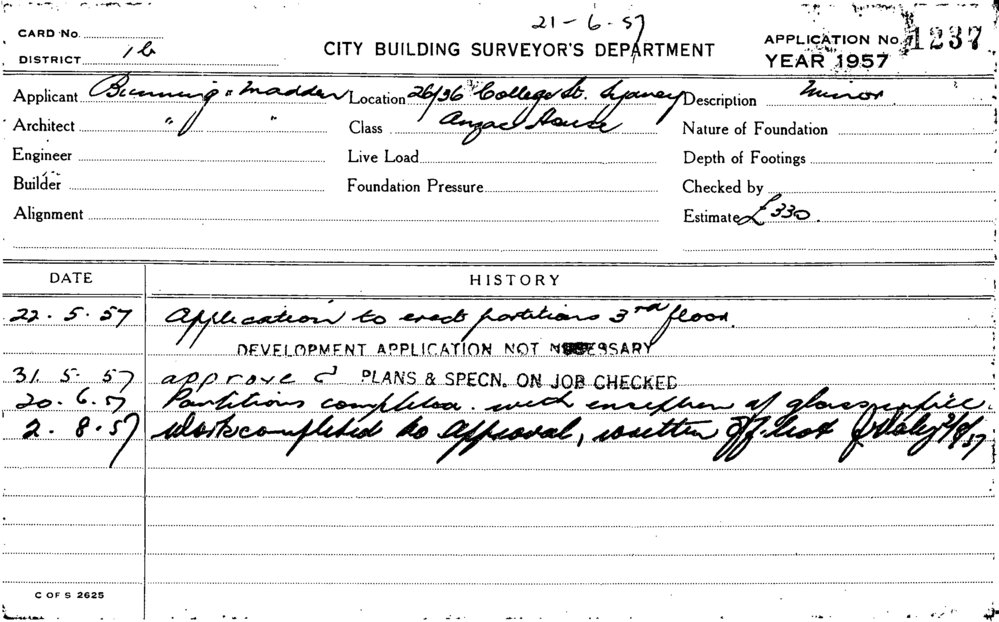 21-6-57
CARD No.
CITY BUILDING SURVEYOR'S DEPARTMENT
APPLICATION No. 1237
DISTRICT 1b
YEAR 1957
Applicant Bunning & Madden Location 26/36 College St. Sydney Description Minor
Architect " " Class Anzac House Nature of Foundation
Engineer Live Load Depth of Footings
Builder Foundation Pressure Checked by
Alignment Estimate £330.
DATE HISTORY
22.5.57 Application to erect partitions 3rd floor.
DEVELOPMENT APPLICATION NOT NECESSARY
31.5.57 approved PLANS & SPECN. ON JOB CHECKED
20.6.57 Partitions completed with exception of glass
2.8.57 Work completed to approval, written off list 2/8/57
C OF S 2625